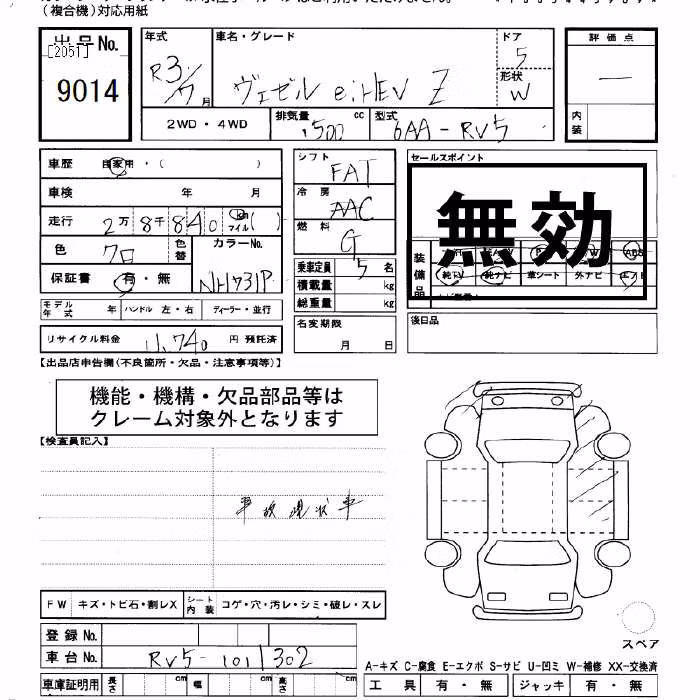 (複合機)対応用紙
出品No.
[2051]
9014
年式 R3/7月
車名・グレード ヴェゼル e:HEV Z
ドア 5
形状 W
評価点 —
内装
2WD・4WD
排気量 1500 cc
型式 6AA-RV5
車歴 自家用・( )
車検 年 月
走行 2万8千840 km マイル( )
色 クロ
色替
カラーNo. NH731P
保証書 有・無
モデル年式 年
ハンドル 左・右
ディーラー・並行
リサイクル料金 11,740 円 預託済
シフト FAT
冷房 AAC
燃料 G
乗車定員 5 名
積載量 kg
総重量 kg
名変期限 月 日
セールスポイント
無効
装備品
純TV 純ナビ 革シート 外ナビ エアB
後日品
【出品店申告欄(不良箇所・欠品・注意事項等)】
機能・機構・欠品部品等は
クレーム対象外となります
【検査員記入】
事故現状車
FW キズ・トビ石・割レX
シート内装 コゲ・穴・汚レ・シミ・破レ・スレ
登録No.
車台No. RV5-1011302
車庫証明用 長さ cm 幅 cm 高さ cm
スペア
A-キズ C-腐食 E-エクボ S-サビ U-凹ミ W-補修 XX-交換済
工具 有・無 ジャッキ 有・無